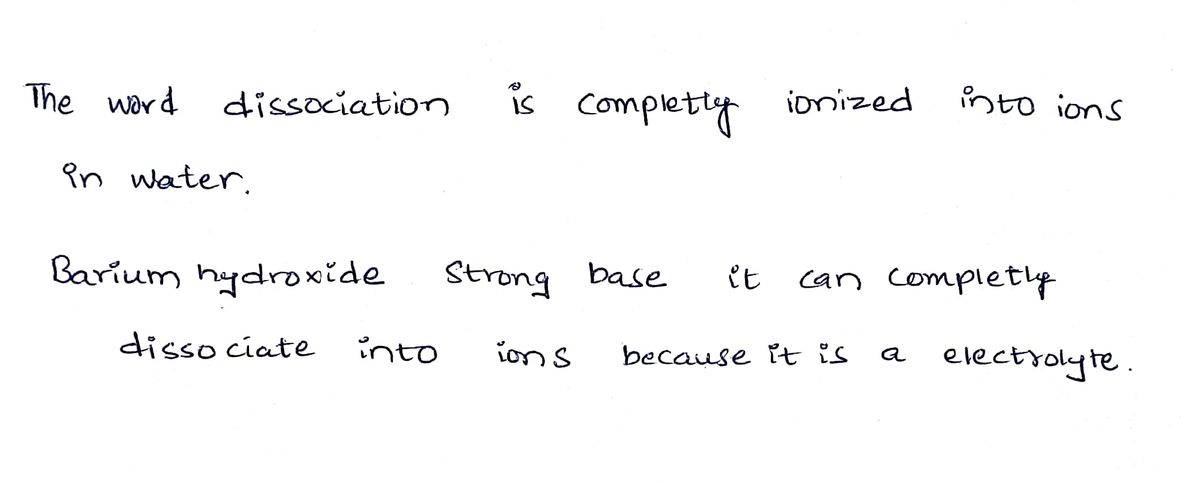 The word dissociation is completly ionized into ions
in water.
Barium hydroxide Strong base it can completly
dissociate into ions because it is a electrolyte.